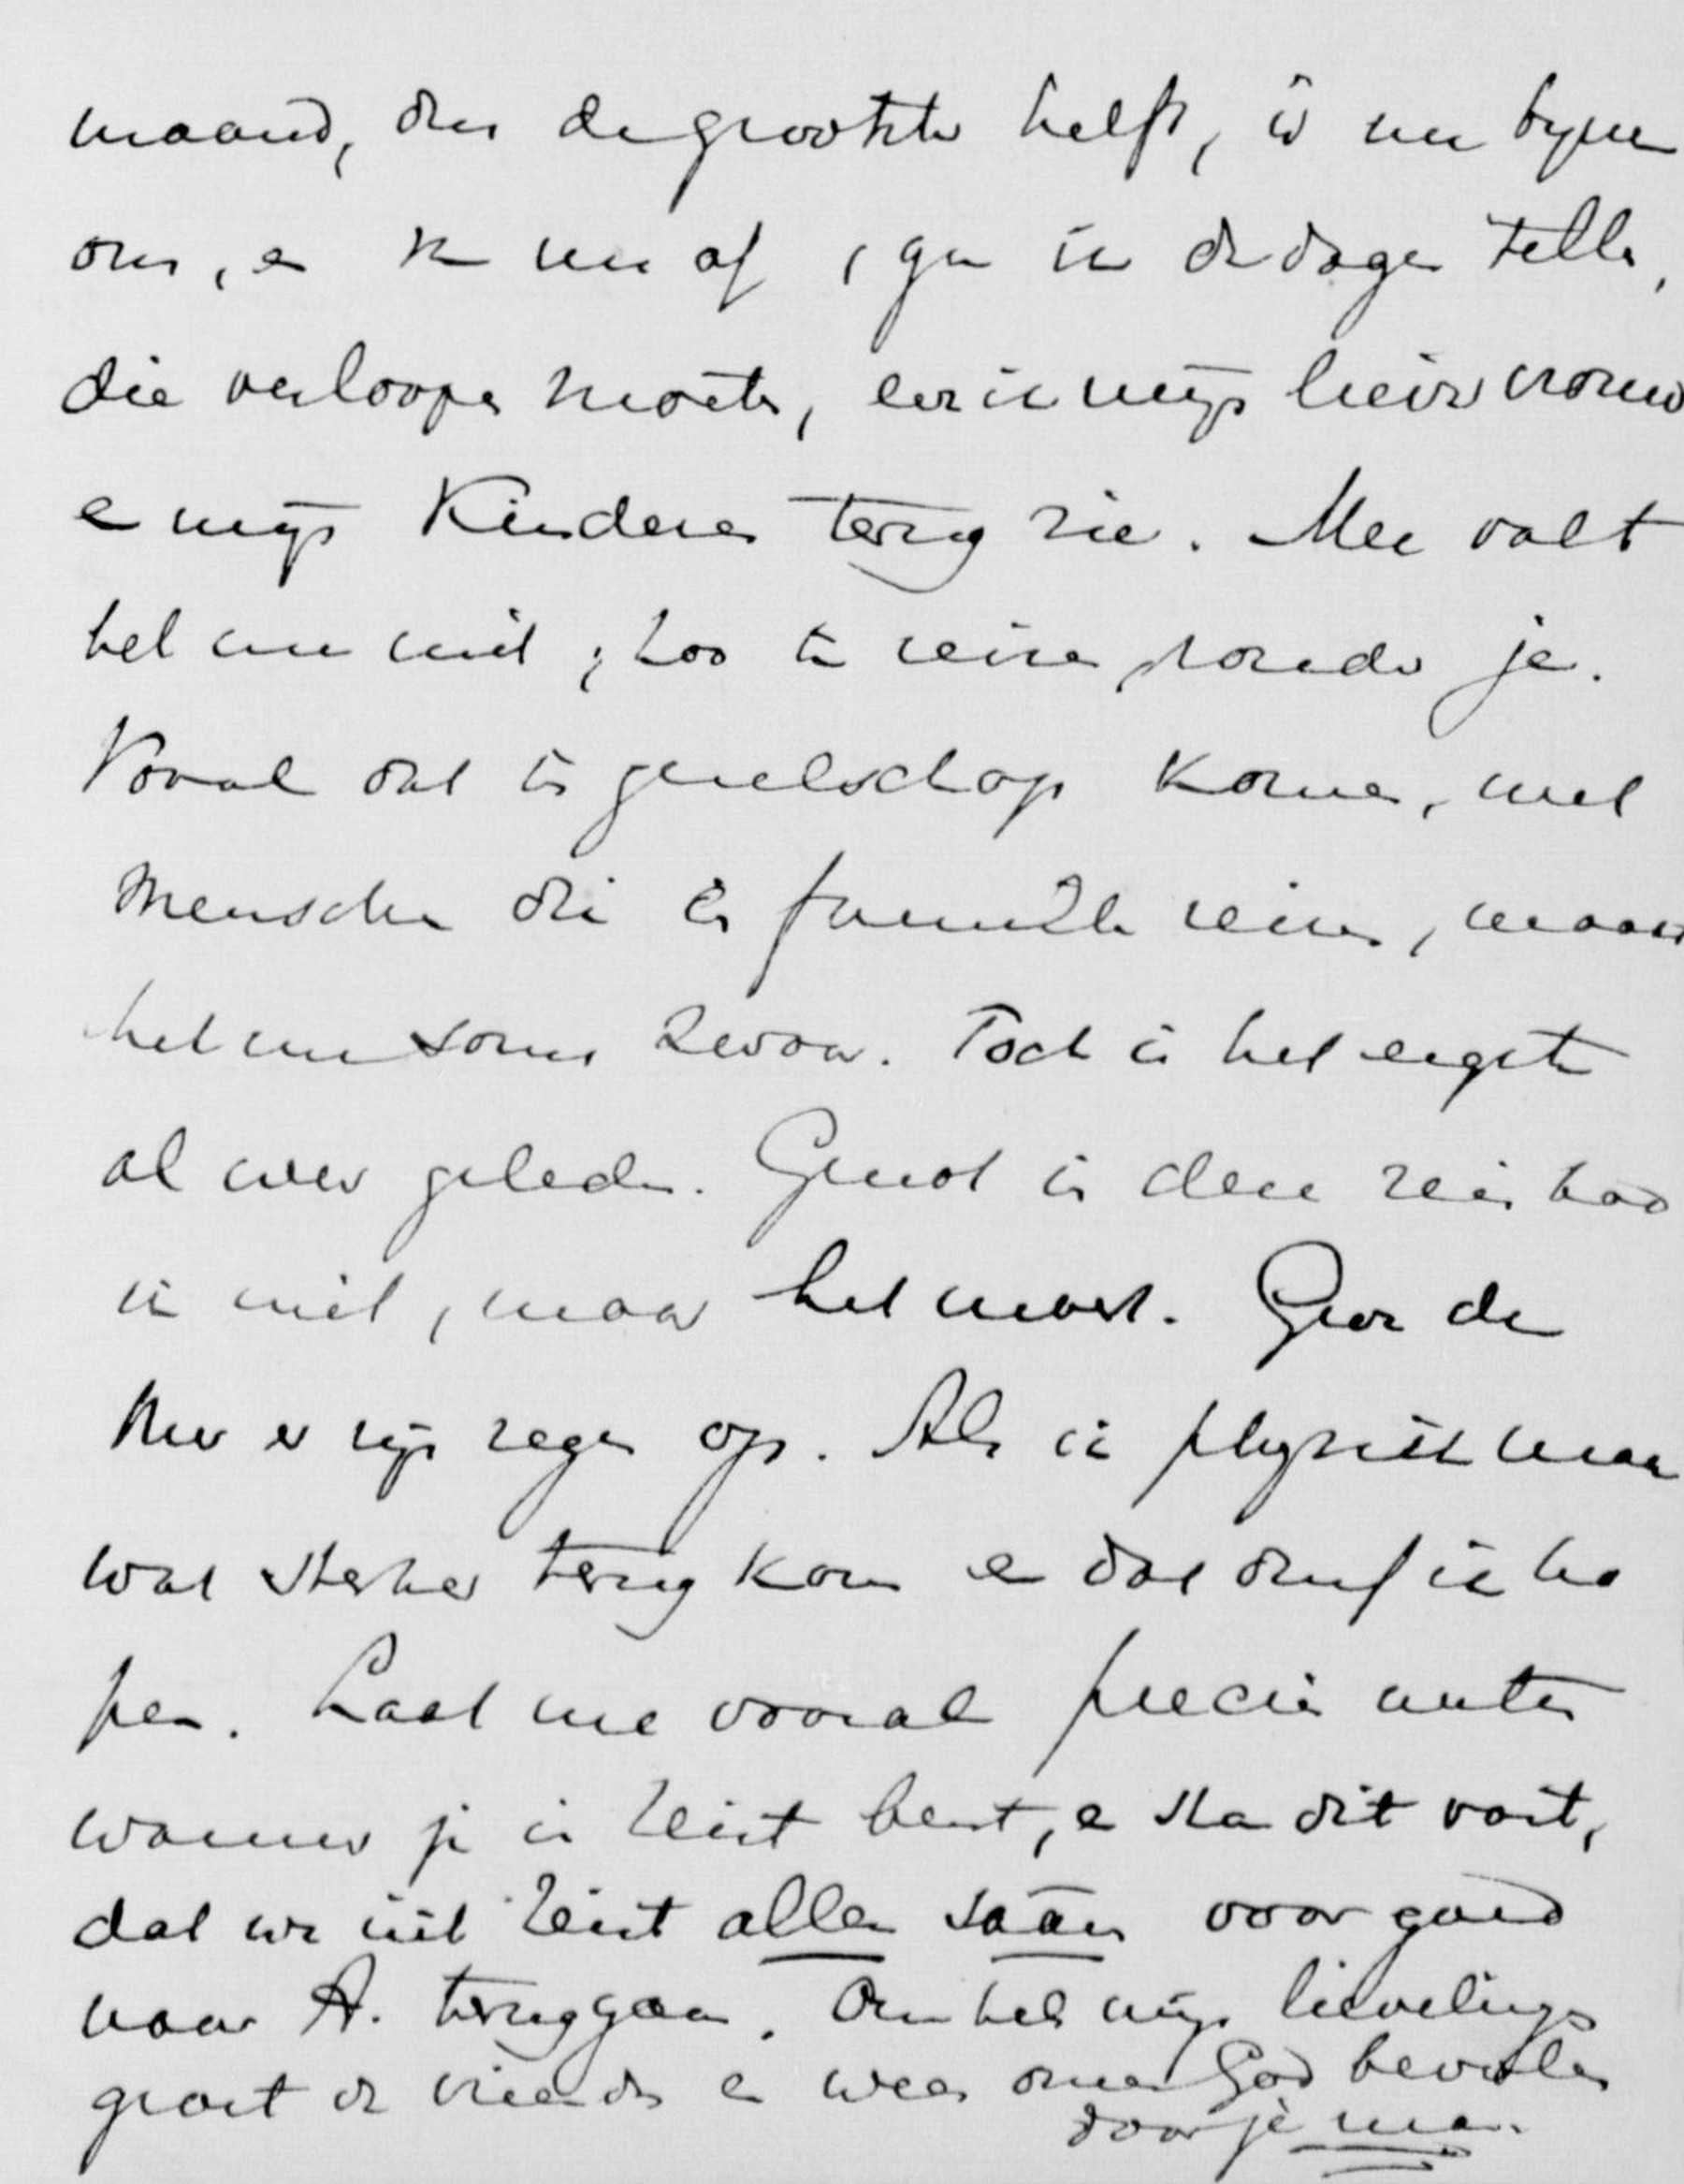 maand, dus de grootste helft, is nu byna
om, en van nu af, ga ik de dagen tellen,
die verloopen moeten, eer ik mijn lieve vrouw
en mijn Kinderen terug zie. Mee valt
het me niet; hoe te reizen, vondt je.
Vooral dat in gezelschap komen, met
menschen die in familie reizen, maakt
het me soms zwaar. Toch is het ergste
al weer geleden. Genot in deze reis had
ik niet, maar het moest. Geve de
Heer er zijn zegen op. Als ik physiek maar
wat sterker terug kom en dat durf ik ho
pen. Laat me vooral precies weten
wanneer je in Zeist bent, en sta dit vast,
dat we uit Zeist allen saam voor goed
naar A. teruggaan. Omhels mijn lievelings
groet de vrienden en wees onzen God bevolen
door je man.